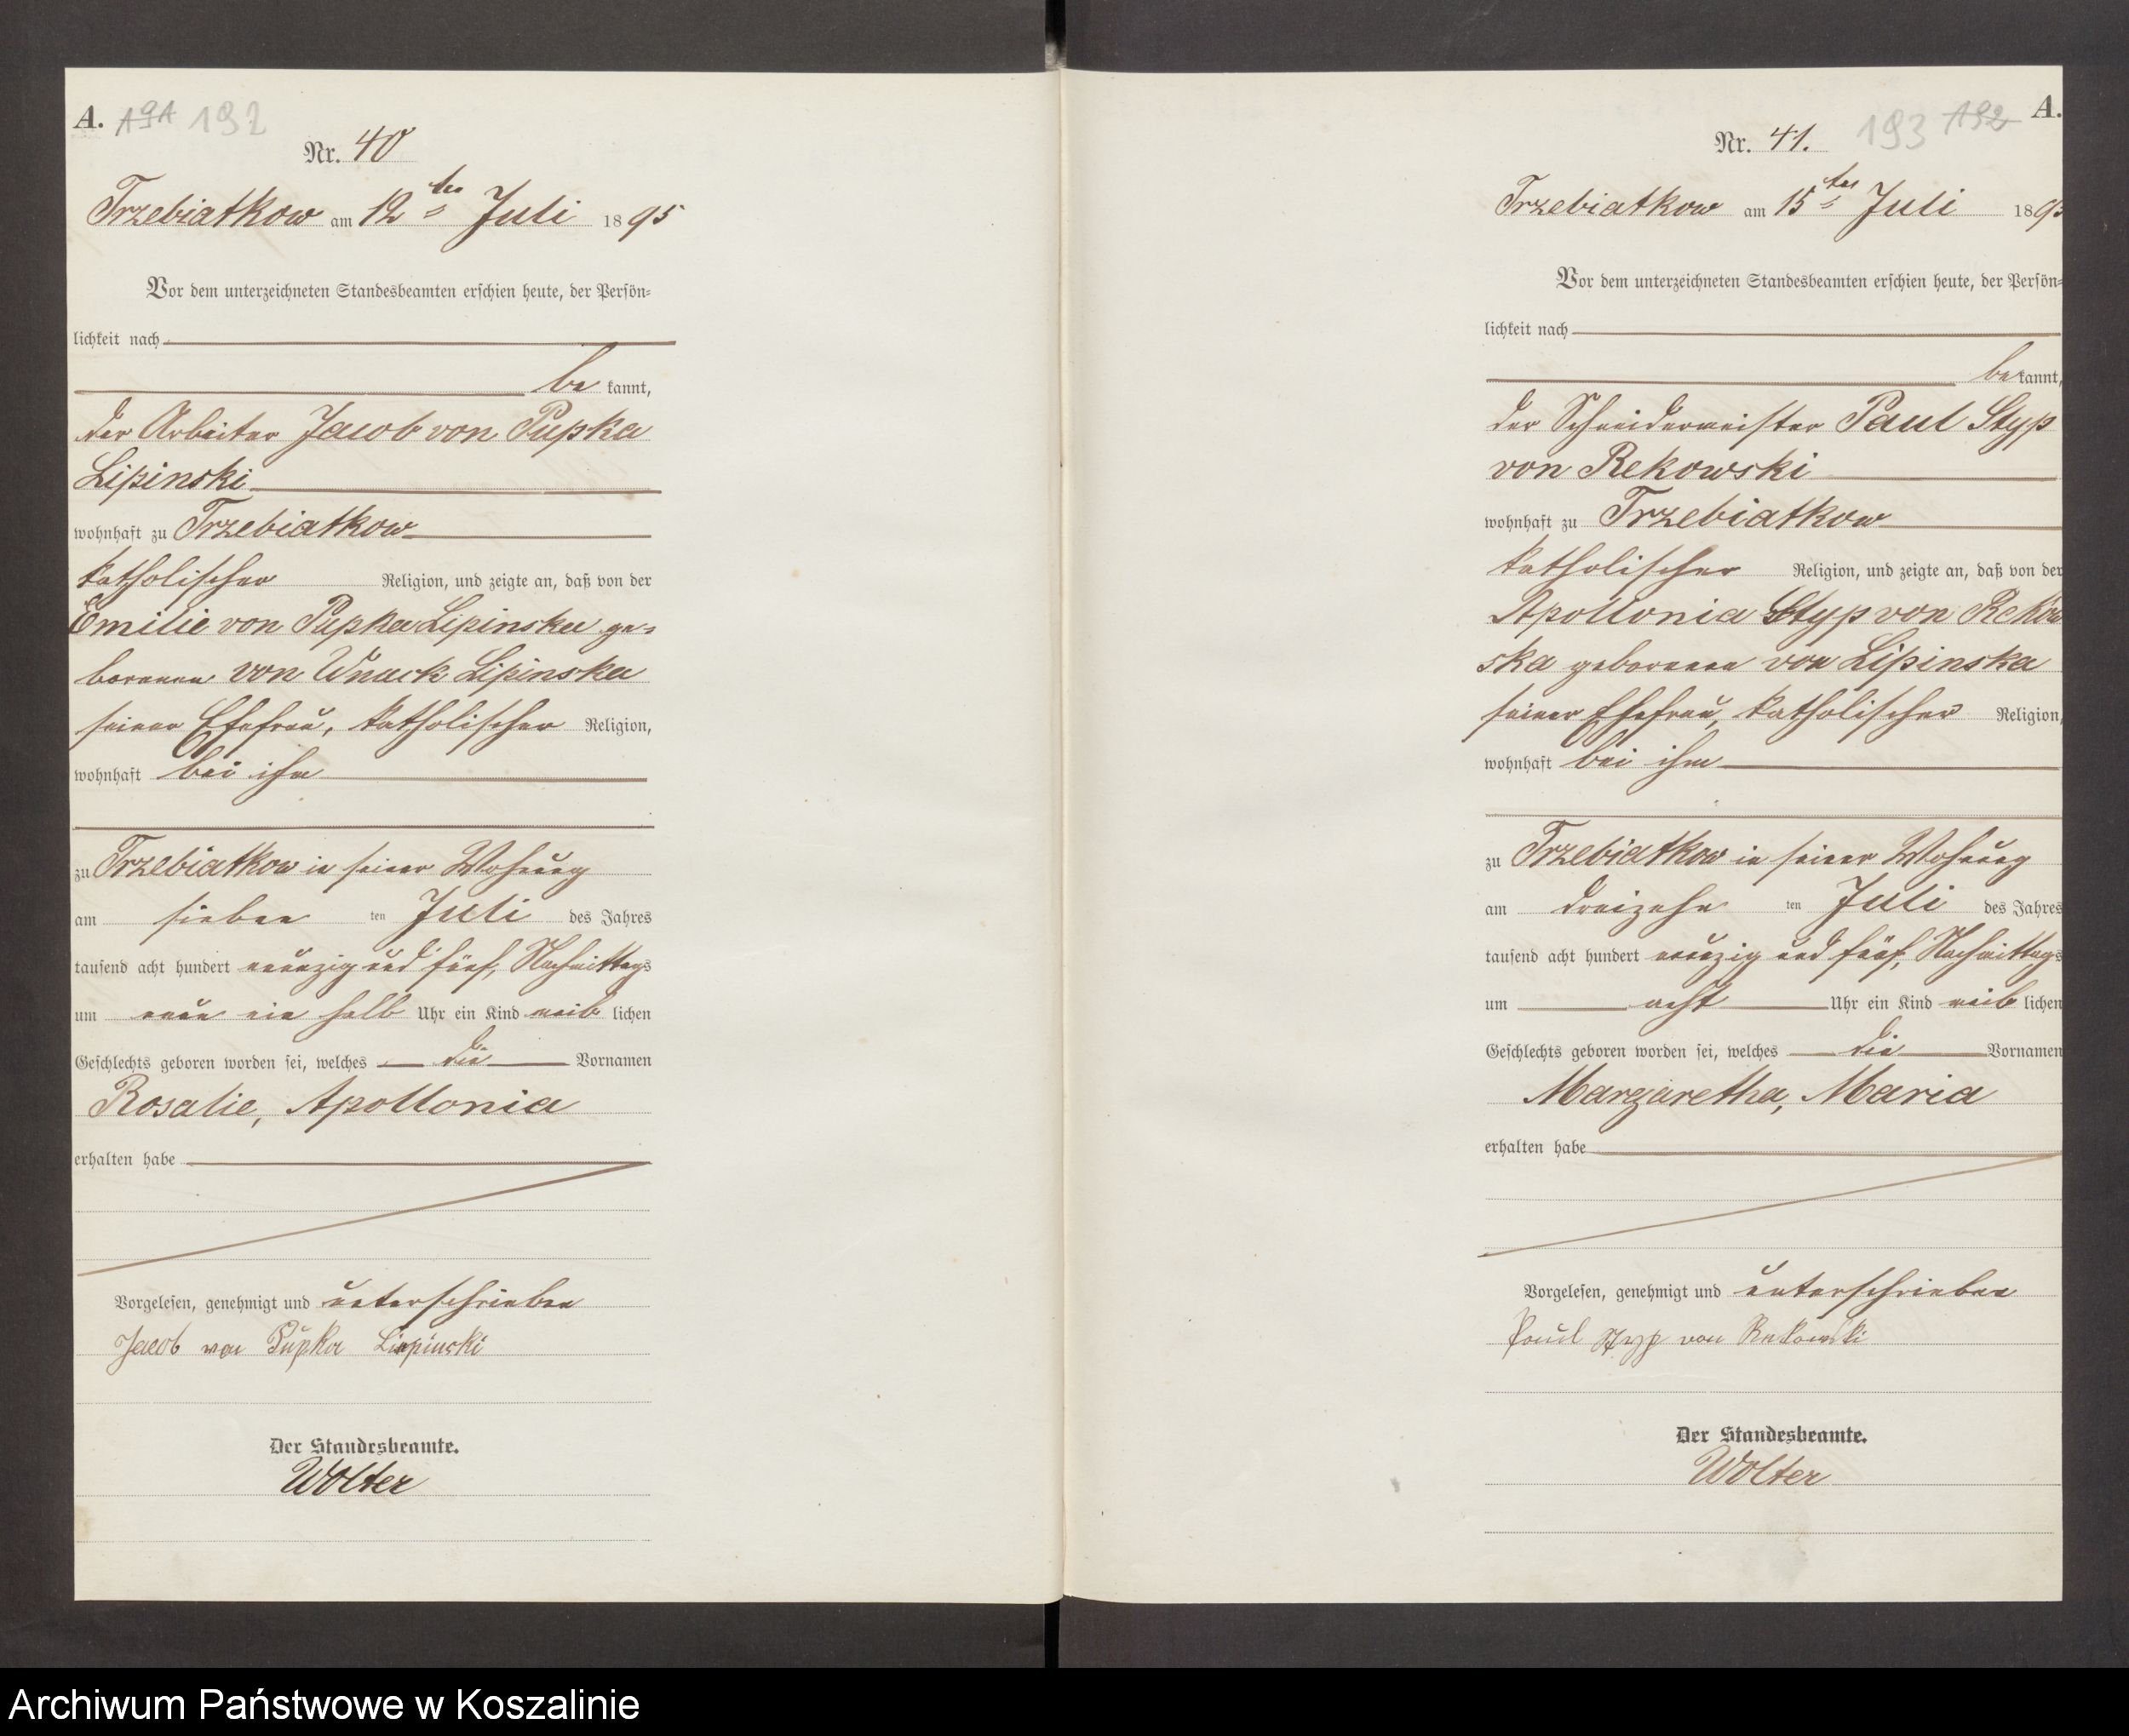 A. 191 192
Nr. 40
Trzebiatkow am 12ten Juli 1895
Vor dem unterzeichneten Standesbeamten erschien heute, der Persön-
lichkeit nach
be kannt,
der Arbeiter Jacob von Pupka
Lipinski
wohnhaft zu Trzebiatkow
katholischer Religion, und zeigte an, daß von der
Emilie von Pupka Lipinska ge-
borenen von Wnuck Lipinska
seiner Ehefrau, katholischer Religion,
wohnhaft bei ihm
zu Trzebiatkow in seiner Wohnung
am sieben ten Juli des Jahres
tausend acht hundert neunzig und fünf, Nachmittags
um neun ein halb Uhr ein Kind weib lichen
Geschlechts geboren worden sei, welches die Vornamen
Rosalie, Apollonia
erhalten habe
Vorgelesen, genehmigt und unterschrieben
Jacob von Pupka Liepinski
Der Standesbeamte.
Wolter
193 192 A.
Nr. 41.
Trzebiatkow am 15ten Juli 1895
Vor dem unterzeichneten Standesbeamten erschien heute, der Persön-
lichkeit nach
be kannt,
der Schneidermeister Paul Styp
von Rekowski
wohnhaft zu Trzebiatkow
katholischer Religion, und zeigte an, daß von der
Apollonia Styp von Rekow
ska geborenen von Lipinska
seiner Ehefrau, katholischer Religion,
wohnhaft bei ihm
zu Trzebiatkow in seiner Wohnung
am dreizehn ten Juli des Jahres
tausend acht hundert neunzig und fünf, Nachmittags
um acht Uhr ein Kind weib lichen
Geschlechts geboren worden sei, welches die Vornamen
Margaretha, Maria
erhalten habe
Vorgelesen, genehmigt und unterschrieben
Paul Styp von Rekowski
Der Standesbeamte.
Wolter
Archiwum Państwowe w Koszalinie